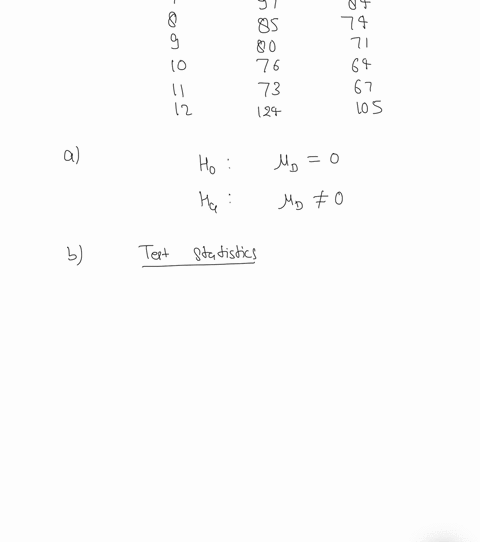 8 85 74
9 80 71
10 76 64
11 73 67
12 124 105
a) H₀ : μ_D = 0
Hₐ : μ_D ≠ 0
b) Test statistics